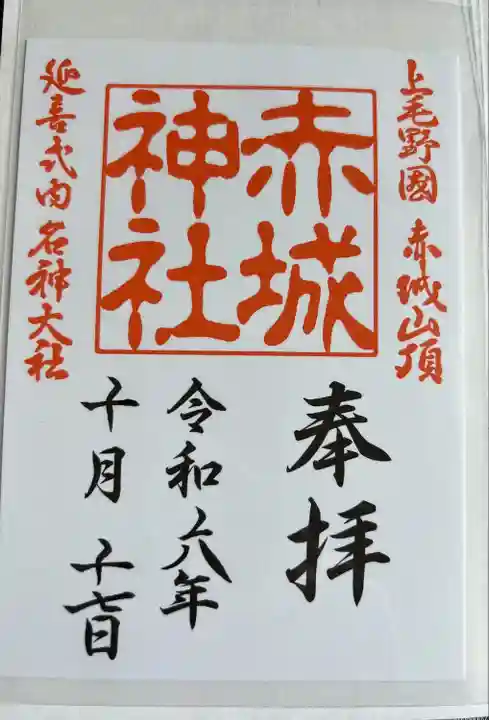 上毛野國 赤城山頂
赤城
神社
延喜式内 名神大社
奉拝
令和六年
十月 十七日